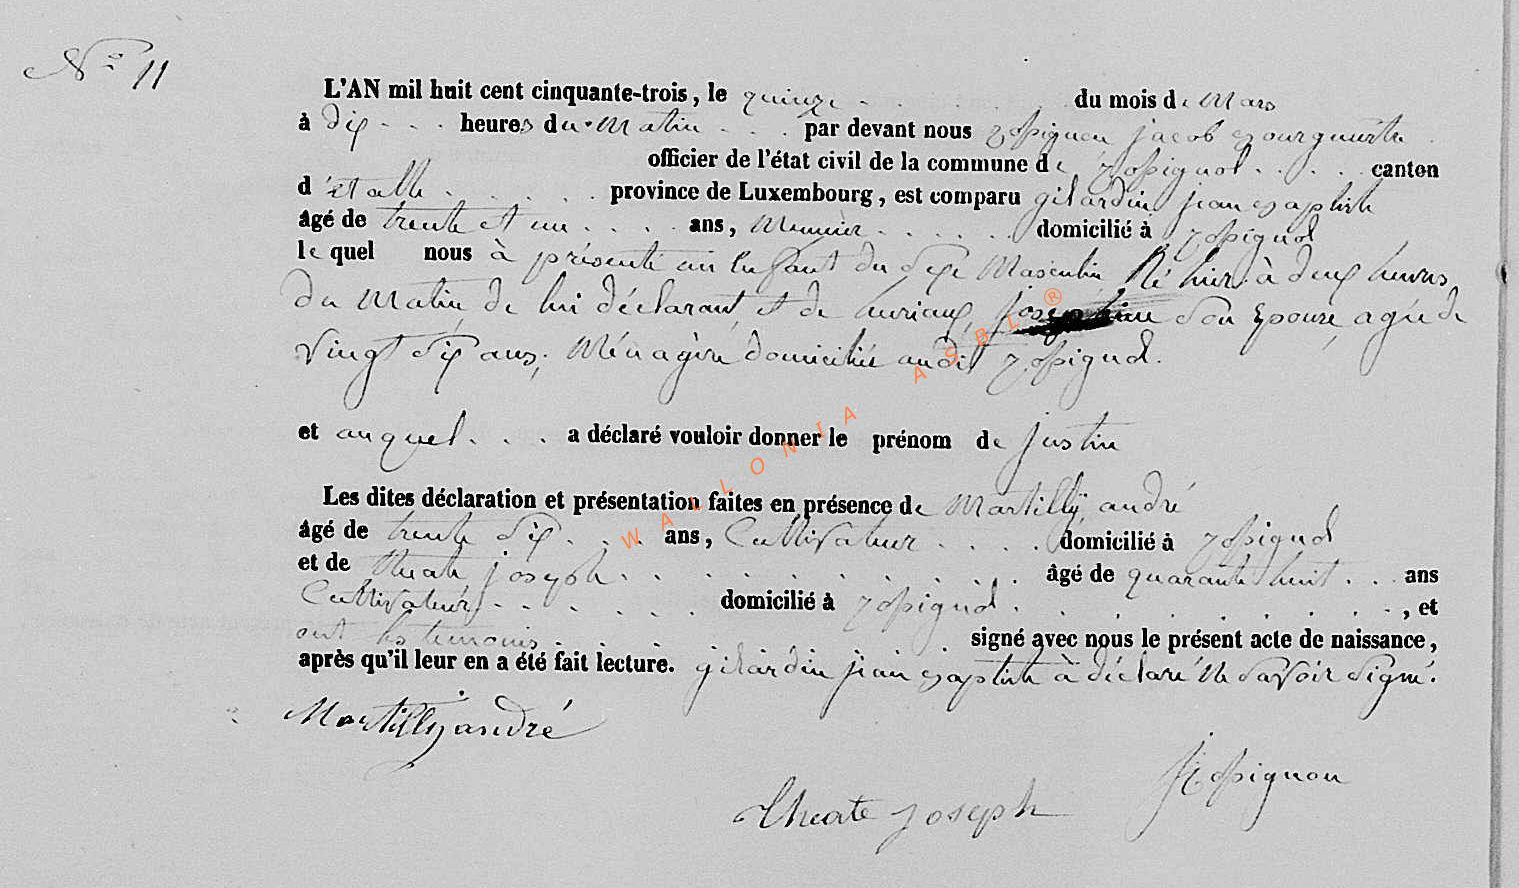 N° 11
L'AN mil huit cent cinquante-trois, le quinze du mois de Mars
à dix heures du Matin par devant nous jacob
officier de l'état civil de la commune de Rossignol canton
d'étalle province de Luxembourg, est comparu gilardin jean baptiste
âgé de trente et un ans, Meunier domicilié à Rossignol
le quel nous à présenté un Enfant du Sexe Masculin Né hier à deux heures
du Matin de lui déclarant et de huriaux, Josephine Son Epouse, agée de
vingt Six ans, Ménagère domiciliés audit Rossignol.
et auquel a déclaré vouloir donner le prénom de justin
Les dites déclaration et présentation faites en présence de Martilly andré
âgé de trente Six ans, Cultivateur domicilié à Rossignol
et de theate joseph âgé de quarante huit ans
Cultivateur domicilié à Rossignol , et
ont les temoins signé avec nous le présent acte de naissance,
après qu'il leur en a été fait lecture. gilardin jean baptiste à déclaré Ne Savoir Signé.
Martilly andré
J Rossignon
theate joseph
WALLONIA ASBL ®